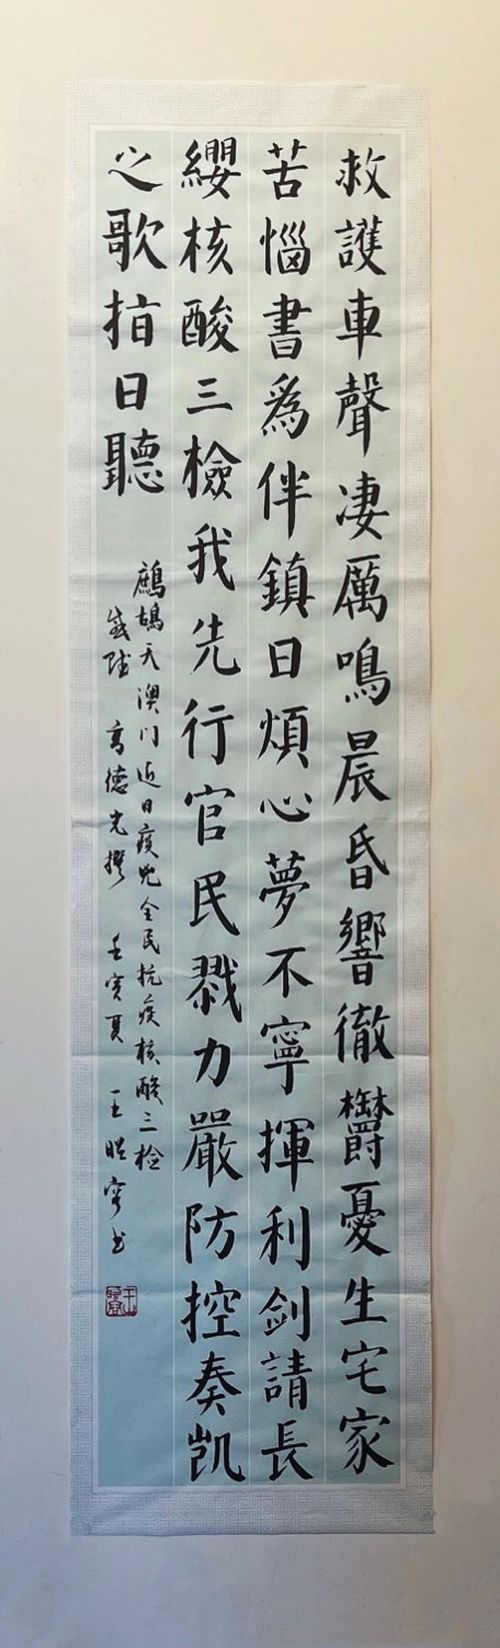 救護車聲凄厲鳴晨昏響徹欝憂生宅家
苦惱書爲伴鎮日煩心夢不寧揮利劍請長
纓核酸三檢我先行官民戮力嚴防控奏凱
之歌指日聽
鷓鴣天澳门近日疫兇全民抗疫核酸三检
感賦 高德光撰 壬寅夏 王